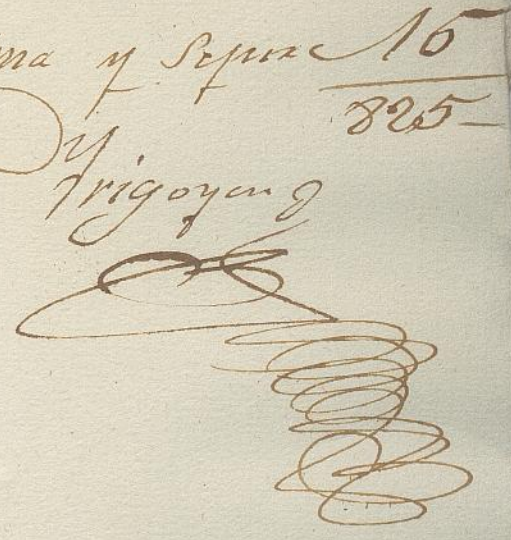 ma y Sepre 16
825-
Yrigoyen